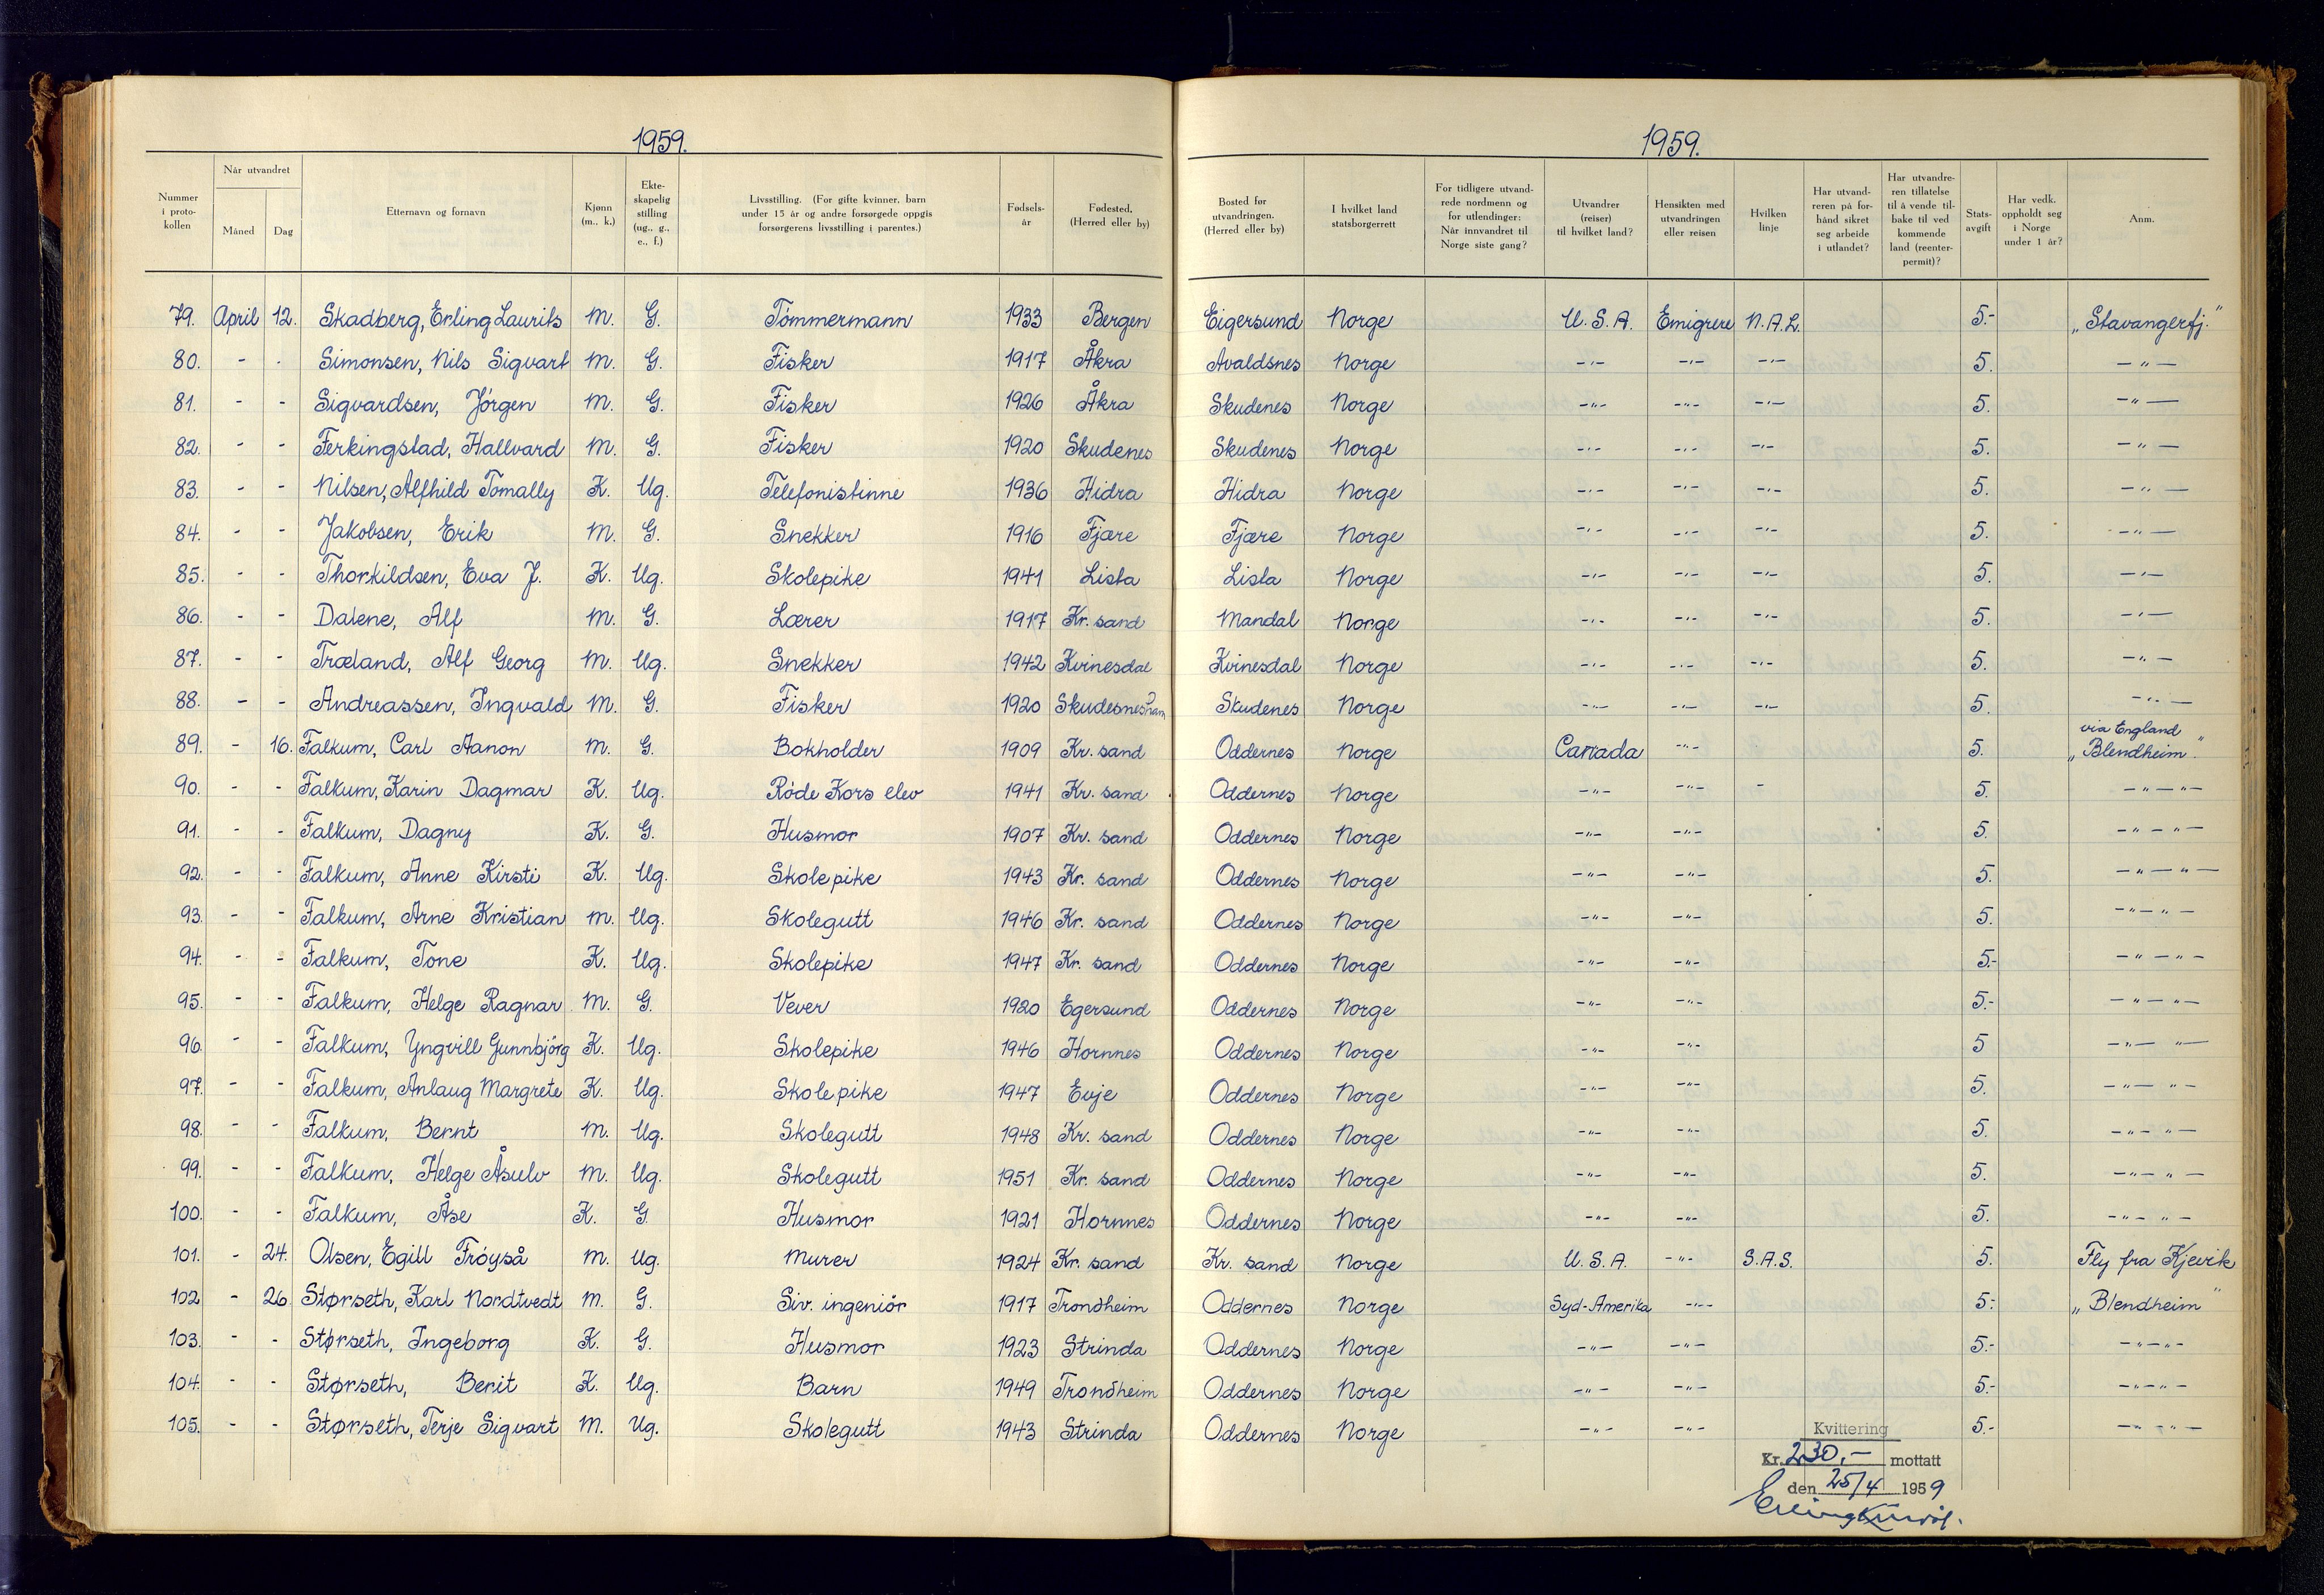 1959.
1959.
Nummer i proto- kollen
Når utvandret
Måned
Dag
Etternavn og fornavn
Kjønn (m., k.)
Ekte- skapelig stilling (ug., g., e., f.)
Livsstilling. (For gifte kvinner, barn under 15 år og andre forsørgede oppgis forsørgerens livsstilling i parentes.)
Fødsels- år
Fødested. (Herred eller by)
Bosted før utvandringen. (Herred eller by)
I hvilket land statsborgerrett
For tidligere utvand- rede nordmenn og for utlendinger: Når innvandret til Norge siste gang?
Utvandrer (reiser) til hvilket land?
Hensikten med utvandringen eller reisen
Hvilken linje
Har utvand- reren på for- hånd sikret seg arbeide i utlandet?
Har utvandre- ren tillatelse til å vende til- bake til ved kommende land (reenter- permit)?
Stats- avgift
Har vedk. oppholdt seg i Norge under 1 år?
Anm.
79. April 12. Skadberg, Erling Laurits M. G. Tömmermann 1933 Bergen Eigersund Norge U.S.A. Emigrere N.A.L. 5.- "Stavangerfj."
80. - . Simonsen, Nils Sigvart M. G. Fisker 1917 Åkra Avaldsnes Norge -"- -"- -"- 5. -"-
81. - - Sigvardsen, Jörgen M. G. Fisker 1926 Åkra Skudenes Norge -"- -"- -"- 5. -"-
82. - - Ferkingstad, Hallvard M. G. Fisker 1920 Skudenes Skudenes Norge -"- -"- -"- 5. -"-
83. - - Nilsen, Alfhild Tomally K. Ug. Telefonistinne 1936 Hidra Hidra Norge -"- -"- -"- 5. -"-
84. - - Jakobsen, Erik M. G. Snekker 1916 Fjære Fjære Norge -"- -"- -"- 5. -"-
85. - - Thorkildsen, Eva J. K. Ug. Skolepike 1941 Lista Lista Norge -"- -"- -"- 5. -"-
86. - - Dalene, Alf M. G. Lærer 1917 Kr. sand Mandal Norge -"- -"- -"- 5. -"-
87. - - Træland, Alf Georg M. Ug. Snekker 1942 Kvinesdal Kvinesdal Norge -"- -"- -"- 5. -"-
88. - - Andreassen, Ingvald M. G. Fisker 1920 Skudesneshavn Skudenes Norge -"- -"- -"- 5. -"-
89. - 16. Falkum, Carl Aanon M. G. Bokholder 1909 Kr. sand Oddernes Norge Canada -"- 5. via England "Blendheim"
90. - - Falkum, Karin Dagmar K. Ug. Röde Kors elev 1941 Kr. sand Oddernes Norge -"- -"- - 5. -"-"-
91. - - Falkum, Dagny K. G. Husmor 1907 Kr. sand Oddernes Norge -"- -"- 5. -"-"-
92. - - Falkum, Anne Kirsti K. Ug. Skolepike 1943 Kr. sand Oddernes Norge -"- -"- 5. -"-"-
93. - - Falkum, Arne Kristian M. Ug. Skolegutt 1946 Kr. sand Oddernes Norge -"- -"- 5. -"-"-
94. - - Falkum, Tone K. Ug. Skolepike 1947 Kr. sand Oddernes Norge -"- -"- 5.- -"-"-
95. - - Falkum, Helge Ragnar M. G. Vever 1920 Egersund Oddernes Norge -"- -"- 5.- -"-"-
96. - - Falkum, Yngvill Gunnbjörg K. Ug. Skolepike 1946 Hornnes Oddernes Norge -"- -"- 5 -"-"-
97. - - Falkum, Anlaug Margrete K. Ug. Skolepike 1947 Evje Oddernes Norge -"- -"- 5. -"-"-
98. - - Falkum, Bernt M. Ug. Skolegutt 1948 Kr. sand Oddernes Norge -"- -"- 5. -"-"-
99. - - Falkum, Helge Åsulv M. Ug. Skolegutt 1951 Kr. sand Oddernes Norge -"- -"- 5. -"-"-
100. - - Falkum, Åse K. G. Husmor 1921 Hornnes Oddernes Norge -"- -"- 5. -"-"-
101. - 24. Olsen, Egill Fröyså M. Ug. Murer 1924 Kr. sand Kr. sand Norge U.S.A. -"- S.A.S. 5. Fly fra Kjevik
102 - 26. Størseth, Karl Nordtvedt M. G. Siv. ingeniör 1917 Trondheim Oddernes Norge Syd-Amerika -"- 5.- "Blendheim"
103. - - Størseth, Ingeborg K. G. Husmor 1923 Strinda Oddernes Norge -"- -"- 5.- -"-"-
104. - - Størseth, Berit K. Ug. Barn 1949 Trondheim Oddernes Norge -"- -"- 5.- -"-"-
105. - - Størseth, Terje Sigvart M. Ug. Skolegutt 1943 Strinda Oddernes Norge -"- -"- 5.- -"-"-
Kvittering
Kr. 230,- mottatt
den 25/4 1959
Erling